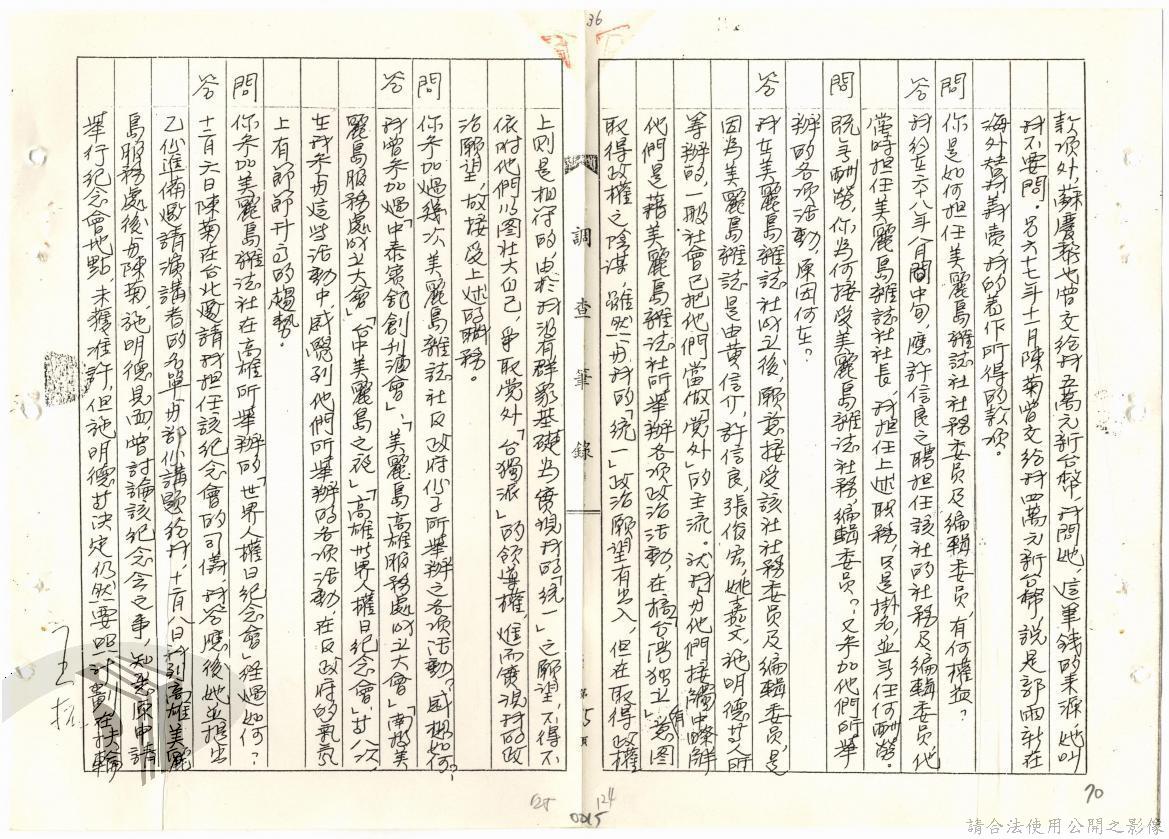 36
款項外,蘇慶黎也曾交給我五萬元新台幣,我問她,這筆錢的來源,她叫
我不要問。另六十七年十一月陳菊曾交給我四萬元新台幣,說是郭雨新在
海外替我義賣,我的著作所得的款項。
問 你是如何担任美麗島雜誌社社務委員及編輯委員,有何權責?
答 我約在六十八年八月間中旬,應許信良之聘担任該社的社務及編輯委員,他
當時担任美麗島雜誌社社長,我担任上述職務,只是掛名,並無任何酬勞。
問 既無酬勞,你為何接受美麗島雜誌社務,編輯委員?又來加他們所舉
辦的各項活動,原因何在?
答 我在美麗島雜誌社成立之後,願意接受該社社務委員及編輯委員,是
因為美麗島雜誌是由黃信介,許信良,張俊宏,姚嘉文,施明德等人所
籌辦的,一般社會已把他們當做「党外」的主流。就我與他們接觸中瞭解
他們是藉美麗島雜誌社所舉辦各項政治活動,在搞「台灣獨立」,有意圖
取得政權之陰謀,雖然與我的「統一」政治願望有出入,但在取得政權
調查筆錄
第5頁
上則是相符的,由於我沒有群眾基礎,為實現我的「統一」之願望,不得不
依附他們,以图壮大自己,爭取党外「台獨派」的領導權,進而實現我的政
治願望,故接受上述的職務。
問 你參加過幾次美麗島雜誌社及政府份子所舉辦之各項活動?感想如何?
答 我曾參加過「中泰賓館創刊酒會」、「美麗島高雄服務處成立大會」「南投美
麗島服務處成立大會」「台中美麗島之夜」「高雄世界人權日紀念會」等八次,
在我參與這些活動中,感覺到他們所舉辦的各項活動,在反政府的氣氛
上有節節升高的趨勢。
問 你參加美麗島雜誌社在高雄所舉辦的「世界人權日紀念會」經過如何?
答 十二月六日陳菊在台北邀請我担任該紀念會的司儀,我答應後她並提出
乙份準備邀請演講者的名單與部份講題給我,十二月八日我到高雄美麗
島服務處後,與陳菊,施明德見面,曾討論該紀念会之事,知悉原申請
舉行紀念會地點,未獲准許,但施明德等決定仍然要照計畫在扶輪
王拓
125
124
0015
70
請合法使用公開之影像